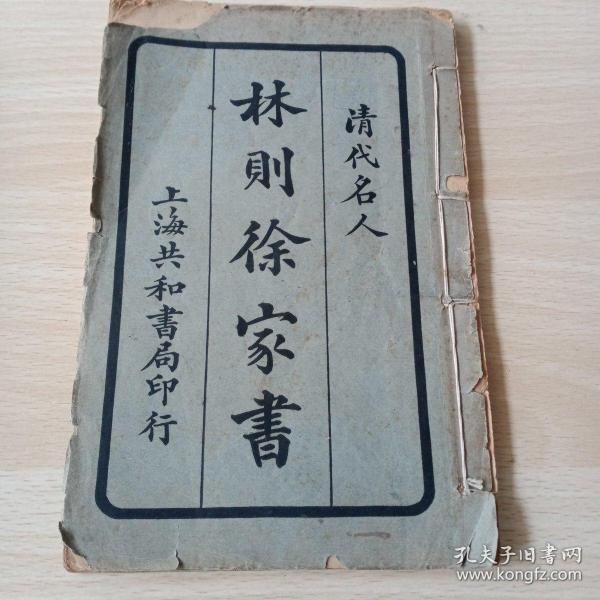 清代名人
林則徐家書
上海共和書局印行
孔夫子旧書网
www.kongfz.com